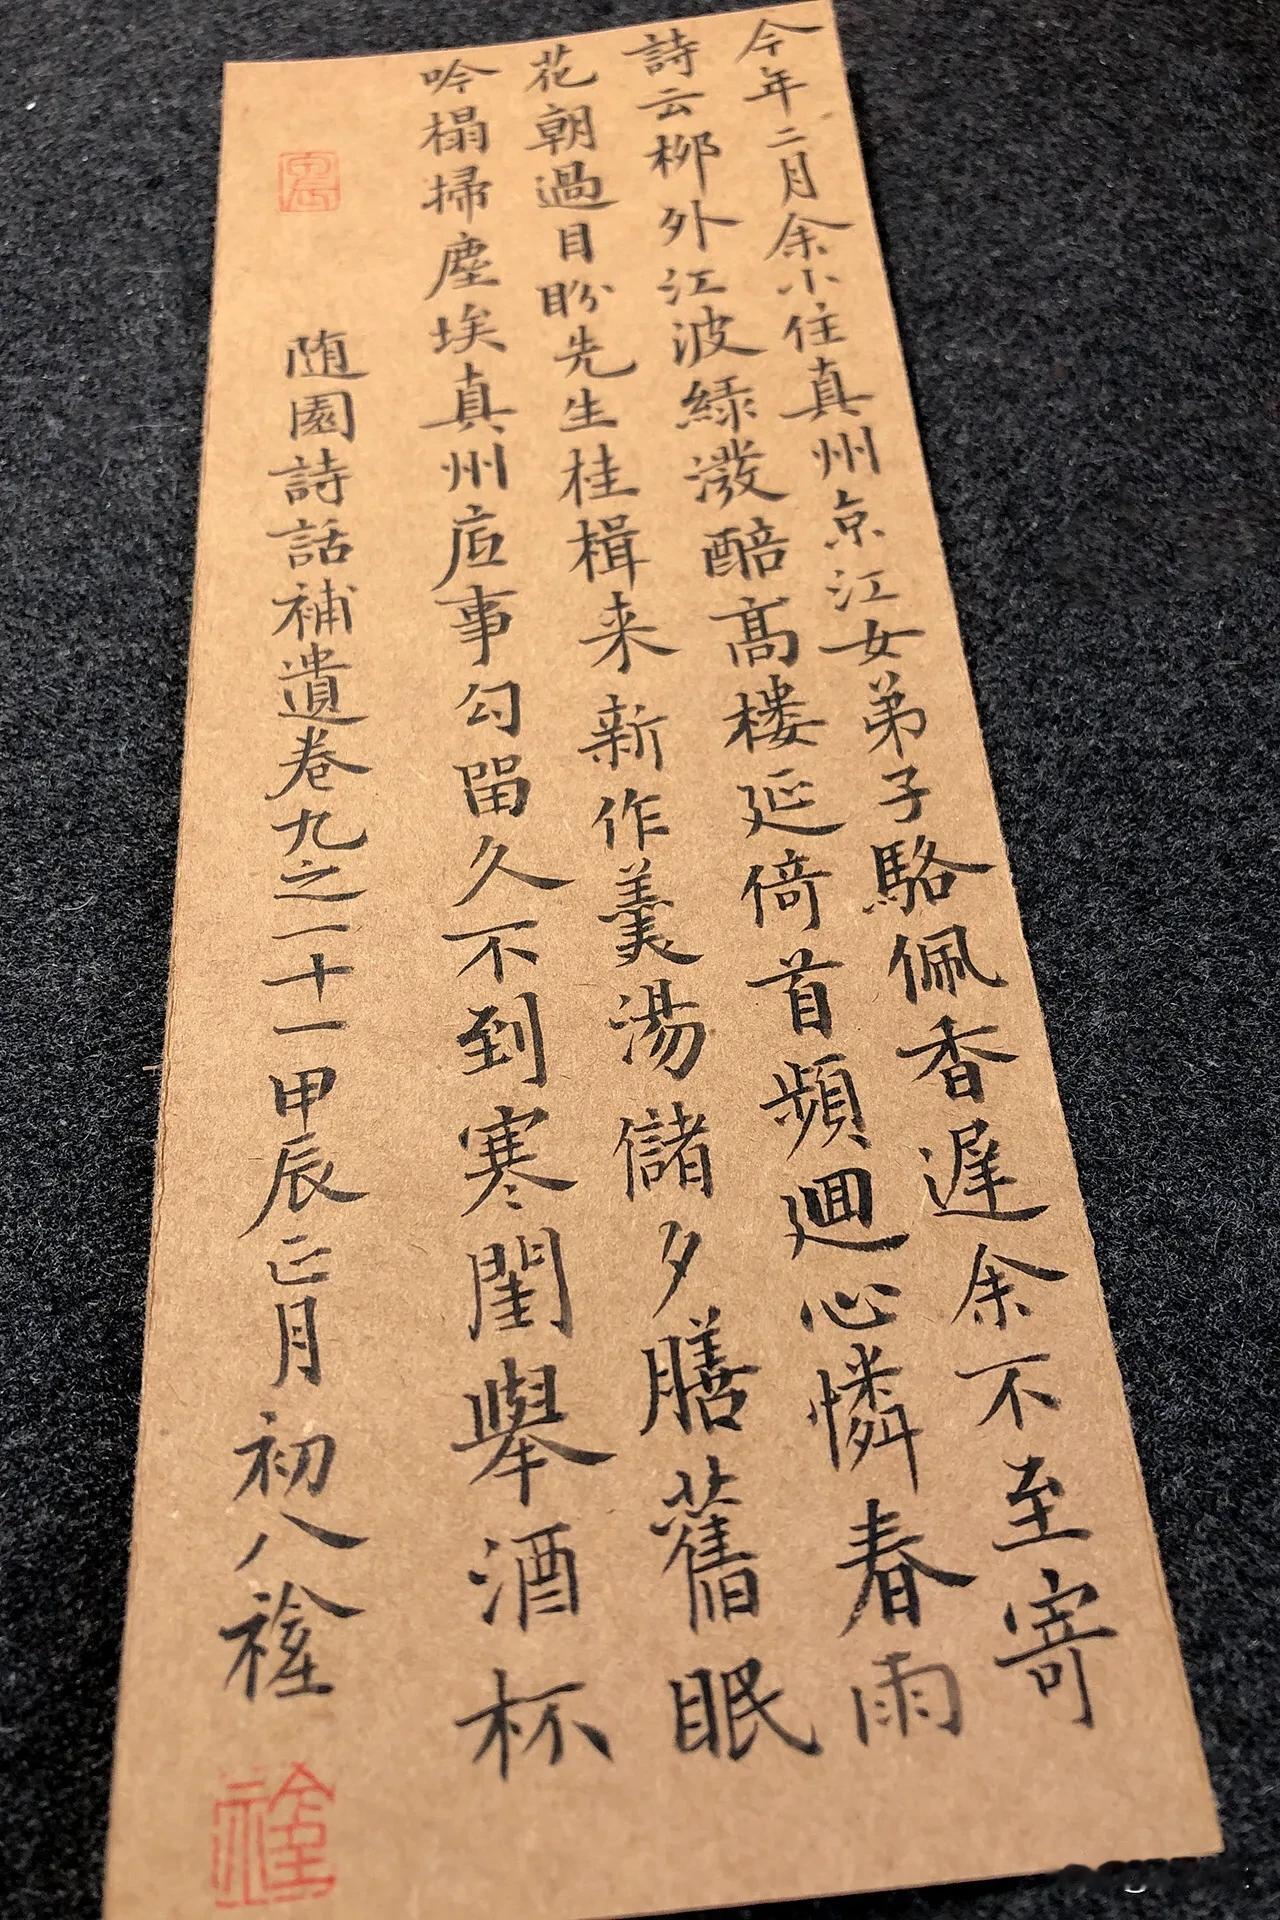 今年二月余小住真州京江女弟子駱佩香遲余不至寄
詩云柳外江波綠潑醅高樓延倚首頻迴心憐春雨
花朝過目盼先生桂楫来新作羹湯儲夕膳舊眠
吟榻掃塵埃真州底事勾留久不到寒閨舉酒杯
随園詩話補遺卷九之一十一甲辰正月初八